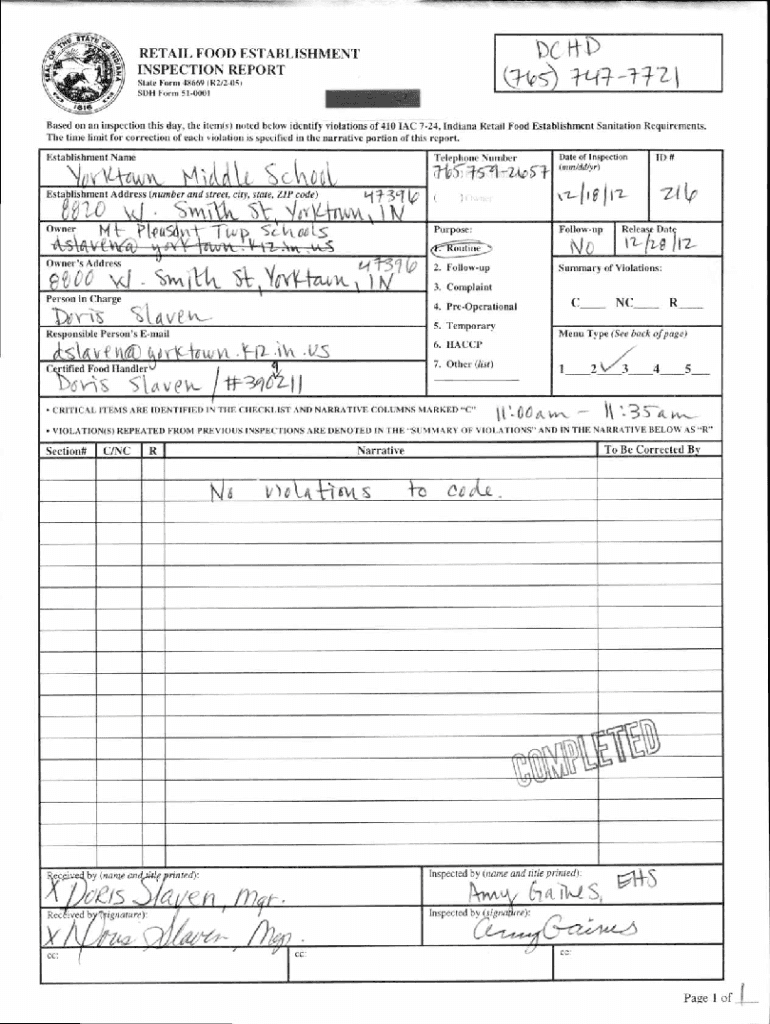 SEAL OF THE STATE OF INDIANA
1816
RETAIL FOOD ESTABLISHMENT
INSPECTION REPORT
State Form 48669 (R2/2-05)
SDH Form 51-0001
DCHD
(765) 747-7721
Based on an inspection this day, the item(s) noted below identify violations of 410 IAC 7-24, Indiana Retail Food Establishment Sanitation Requirements.
The time limit for correction of each violation is specified in the narrative portion of this report.
Establishment Name
Yorktown Middle School
Telephone Number
765-759-2657
( ) Owner
Date of Inspection
(mm/dd/yr)
12/18/12
ID #
216
Establishment Address (number and street, city, state, ZIP code) 47396
8820 W. Smith St, Yorktown, IN
Owner Mt Pleasant Twp Schools
dslaven@yorktown.k12.in.us
Purpose:
1. Routine
2. Follow-up
3. Complaint
4. Pre-Operational
5. Temporary
6. HACCP
7. Other (list)
Follow-up
NO
Release Date
12/28/12
Owner's Address 47396
8800 W. Smith St, Yorktown, IN
Summary of Violations:
C___ NC___ R___
Person in Charge
Doris Slaven
Responsible Person's E-mail
dslaven@yorktown.k12.in.us
Menu Type (See back of page)
1___2✓3___4___5___
Certified Food Handler
Doris Slaven / #3909211
• CRITICAL ITEMS ARE IDENTIFIED IN THE CHECKLIST AND NARRATIVE COLUMNS MARKED "C" 11:00am - 11:35am
• VIOLATION(S) REPEATED FROM PREVIOUS INSPECTIONS ARE DENOTED IN THE "SUMMARY OF VIOLATIONS" AND IN THE NARRATIVE BELOW AS "R"
Section# C/NC R Narrative To Be Corrected By
No violations to code.
COMPLETED
Received by (name and title printed):
X DORIS Slaven, Mgr.
Inspected by (name and title printed):
Amy Gaines, EHS
Received by (signature):
X Doris Slaven, Mgr.
Inspected by (signature):
Amy Gaines
cc: cc: cc:
Page 1 of 1